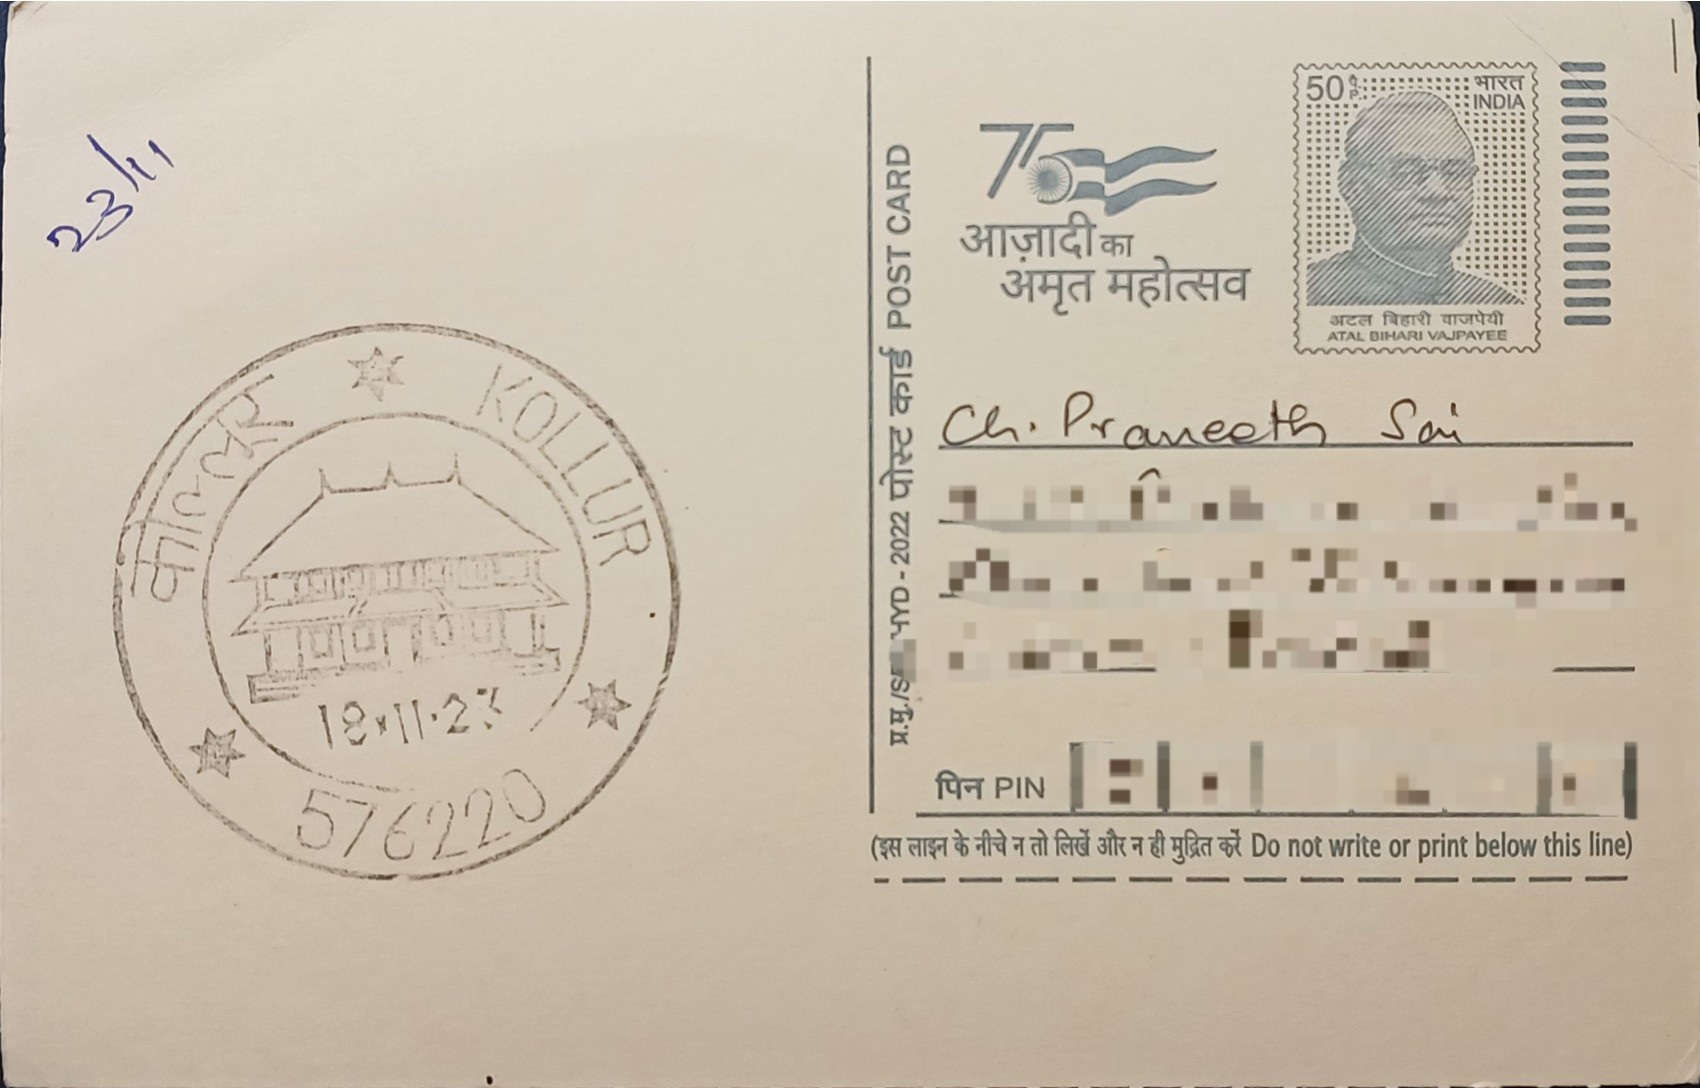 23/11
कोल्लूर KOLLUR
18.11.23
576220
प्र.मु./S PYD - 2022 पोस्ट कार्ड POST CARD
75
आज़ादी का
अमृत महोत्सव
50 पै. P. भारत
INDIA
अटल बिहारी वाजपेयी
ATAL BIHARI VAJPAYEE
Ch. Praneeth Sai
पिन PIN
(इस लाइन के नीचे न तो लिखें और न ही मुद्रित करें Do not write or print below this line)